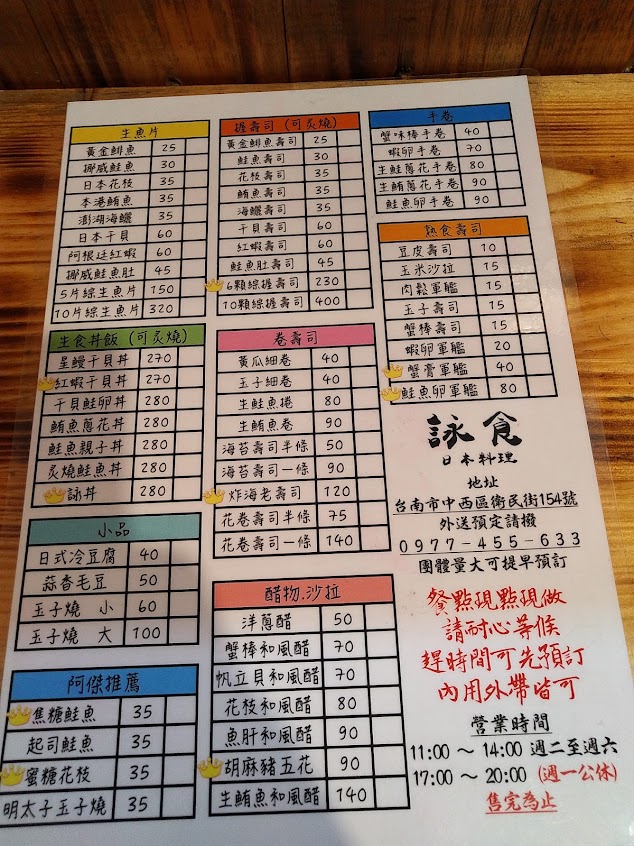 生魚片
黃金鯡魚 25
挪威鮭魚 30
日本花枝 35
本港鮪魚 35
澎湖海鱺 35
日本干貝 60
阿根廷紅蝦 60
挪威鮭魚肚 45
5片綜生魚片 150
10片綜生魚片 320
生食丼飯(可炙燒)
星鰻干貝丼 270
紅蝦干貝丼 270
干貝鮭卵丼 280
鮪魚蔥花丼 280
鮭魚親子丼 280
炙燒鮭魚丼 280
詠丼 280
小品
日式冷豆腐 40
蒜香毛豆 50
玉子燒 小 60
玉子燒 大 100
阿傑推薦
焦糖鮭魚 35
起司鮭魚 35
蜜糖花枝 35
明太子玉子燒 35
握壽司(可炙燒)
黃金鯡魚壽司 25
鮭魚壽司 30
花枝壽司 35
鮪魚壽司 35
海鱺壽司 35
干貝壽司 60
紅蝦壽司 60
鮭魚肚壽司 45
6顆綜握壽司 230
10顆綜握壽司 400
卷壽司
黃瓜細卷 40
玉子細卷 40
生鮭魚捲 80
生鮪魚卷 90
海苔壽司半條 50
海苔壽司一條 90
炸海老壽司 120
花卷壽司半條 75
花卷壽司一條 140
醋物.沙拉
洋蔥醋 50
蟹棒和風醋 70
帆立貝和風醋 70
花枝和風醋 80
魚肝和風醋 90
胡麻豬五花 90
生鮪魚和風醋 140
手卷
蟹味棒手卷 40
蝦卵手卷 70
生鮭蔥花手卷 80
生鮪蔥花手卷 90
鮭魚卵手卷 90
熟食壽司
豆皮壽司 10
玉米沙拉 15
肉鬆軍艦 15
玉子壽司 15
蟹棒壽司 15
蝦卵軍艦 20
蟹膏軍艦 40
鮭魚卵軍艦 80
詠食
日本料理
地址
台南市中西區衛民街154號
外送預定請撥
0977-455-633
團體量大可提早預訂
餐點現點現做
請耐心等候
趕時間可先預訂
內用外帶皆可
營業時間
11:00 ~ 14:00 週二至週六
17:00 ~ 20:00 (週一公休)
售完為止